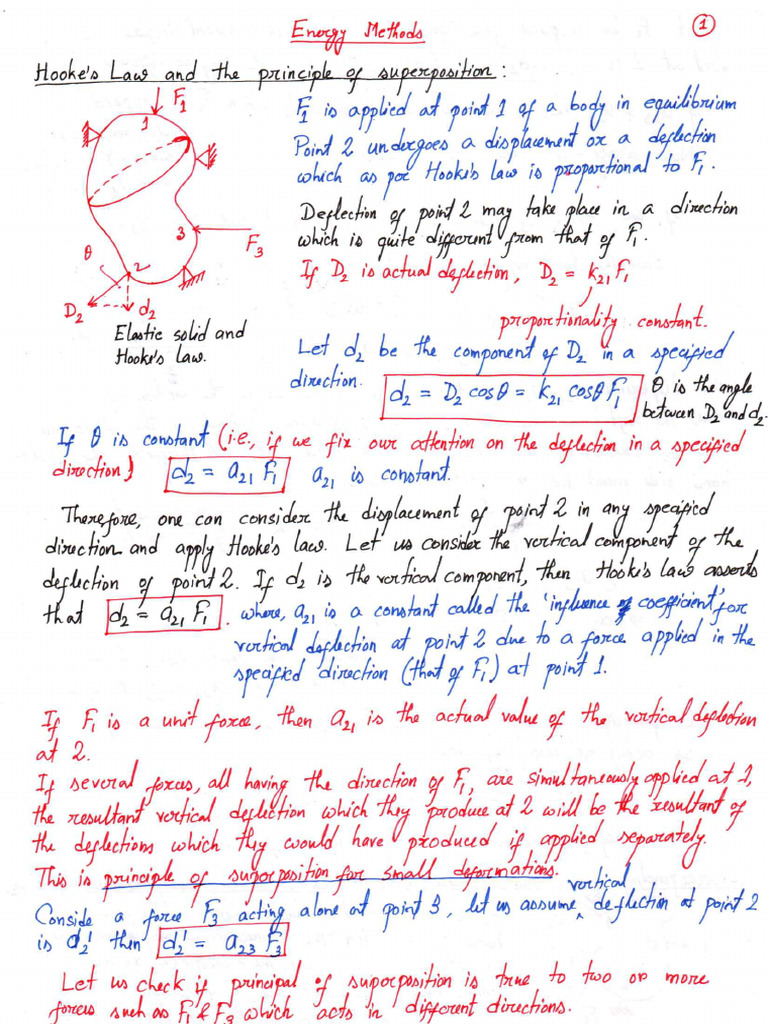 Energy Methods
1
Hooke's Law and the principle of superposition :
F1
1
3
F3
θ
2
D2
d2
Elastic solid and
Hooke's law.
F1 is applied at point 1 of a body in equilibrium
Point 2 undergoes a displacement or a deflection
which as per Hooke's law is proportional to F1.
Deflection of point 2 may take place in a direction
which is quite different from that of F1.
If D2 is actual deflection, D2 = k21 F1
proportionality constant.
Let d2 be the component of D2 in a specified
direction.
d2 = D2 cosθ = k21 cosθ F1
θ is the angle
between D2 and d2.
If θ is constant (i.e., if we fix our attention on the deflection in a specified
direction) d2 = a21 F1 a21 is constant.
Therefore, one can consider the displacement of point 2 in any specified
direction and apply Hooke's law. Let us consider the vertical component of the
deflection of point 2. If d2 is the vertical component, then Hooke's law asserts
that d2 = a21 F1. where, a21 is a constant called the 'influence coefficient' for
vertical deflection at point 2 due to a force applied in the
specified direction (that of F1) at point 1.
If F1 is a unit force, then a21 is the actual value of the vertical deflection
at 2.
If several forces, all having the direction of F1, are simultaneously applied at 1,
the resultant vertical deflection which they produce at 2 will be the resultant of
the deflections which they would have produced if applied separately.
This is principle of superposition for small deformations.
Conside a force F3 acting alone at point 3, let us assume, vertical deflection at point 2
is d2' then d2' = a23 F3
Let us check if principal of superposition is true to two or more
forces such as F1 & F3 which acts in different directions.